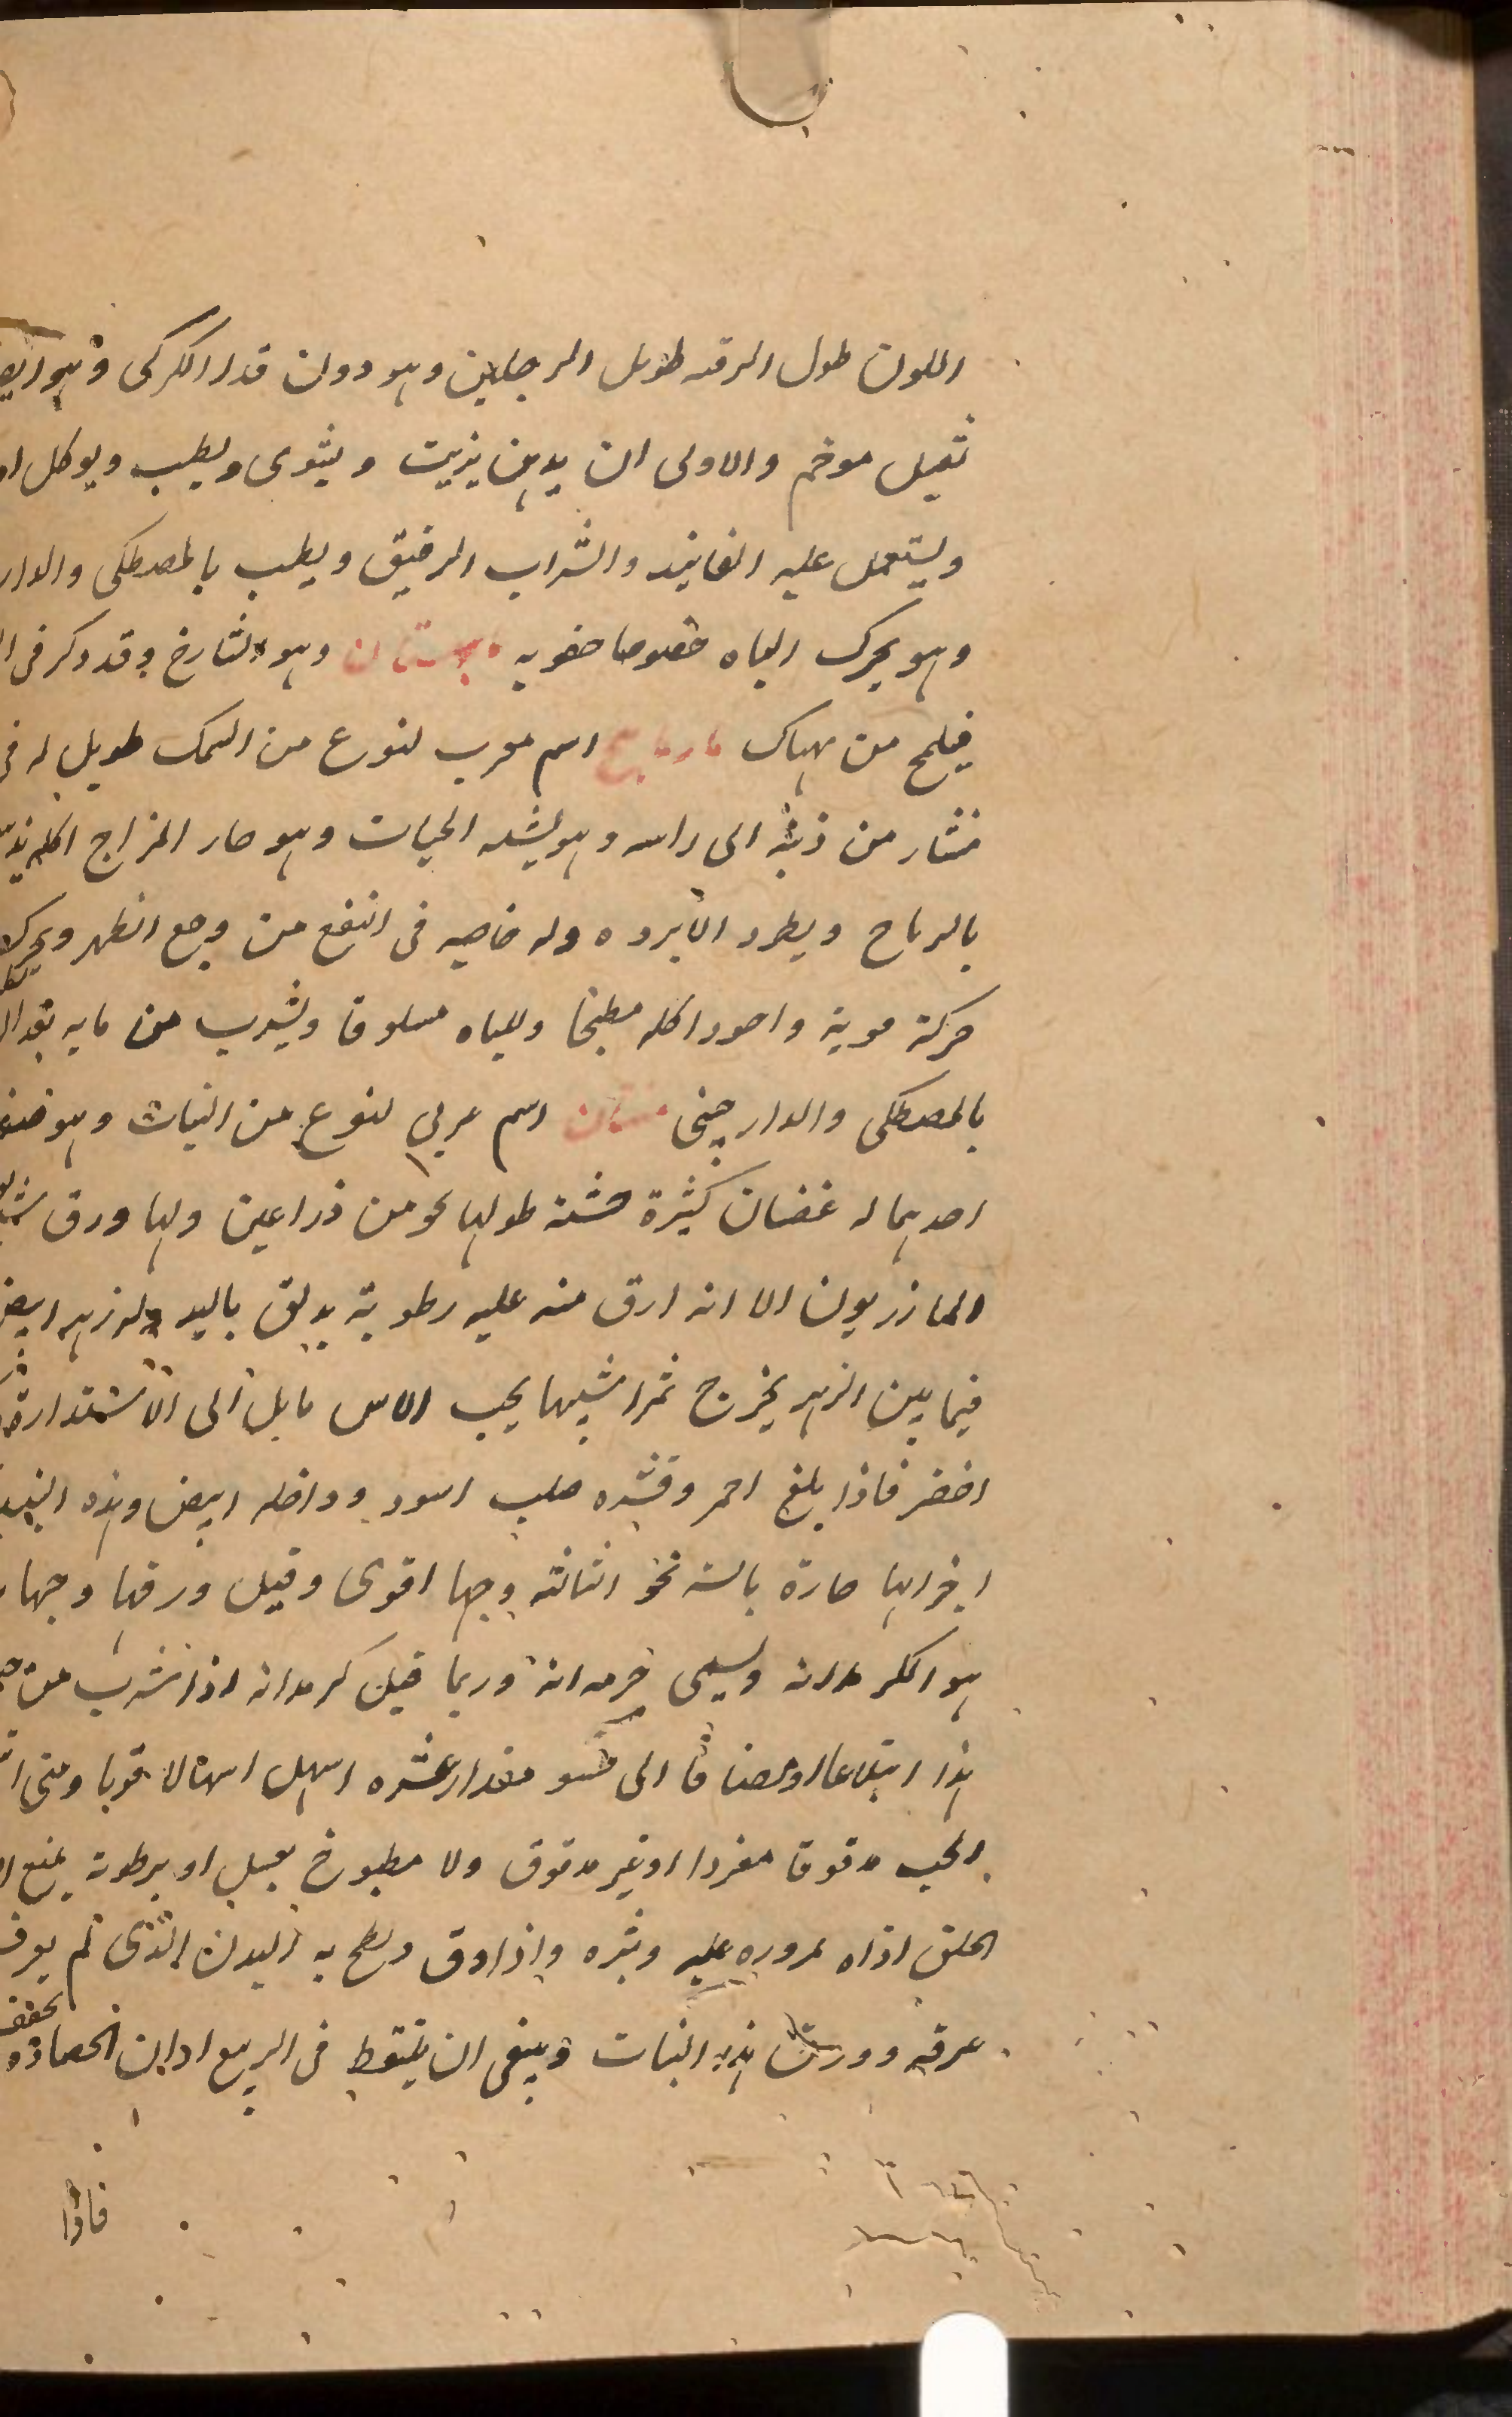 اللون طول الرقبه طويل الرجلين وهو دون قدر الكركى وهو ابض
ثقيل موخم والاولى ان يدهن بزيت ويشوى ويطيب ويوكل
ويستعمل عليه الفانيد والشراب الرقيق ويطيب بالمصطكى والدار
وهو يحرك الباه خصوصا خصويه وهو وقد ذكر فى
من هناك مارماهيج اسم معرب لنوع من السمك طويل له فى
منشار من ذنبه الى راسه وهو يشبه الحيات وهو حار المزاج اكله
بالرياح ويطرد الابرده وله خاصيه فى النفع من وجع الظهر ويحرك
حركة قوية واجود اكله مطبخا وللباه مسلوقا ويشرب من مايه
بالمصطكى والدارچينى مثنان اسم عربي لنوع من النبات وهو صنف
احدهما له غضبان كثيرة حسنة طولها نحو من ذراعين ولها ورق
المازريون الا انه ارق منه عليه رطوبة يدبق باليد وله زهر ابيض
فيما بين الزهر يخرج ثمرا شبيها بحب الاس مايل الى الاستدارة
اخضر فاذا بلغ احمر وقشره صلب اسود وداخله ابيض وهذه
اجزالها حارة وحبها اقوى وقيل ورقها وحبها
هو الكرمدانه ويسمى خرمدانة وربما قيل كرمدانه اذا شرب من
هذا ابتلاعا او مضافا الى مقدار عشره اسهل اسهالا قويا ومتى
الحب مدقوقا مفردا او غير مدقوق ولا مطبوخ بعسل او برطوبة يمنع
الحلق اذاه لمروره عليه ونثره واذا دق ولطخ به البدن الذى لم يعرف
عرقه وورق هذه النبات وينبغى ان يلتقط فى الربيع اوان الحصاد
يجفف
فاذا